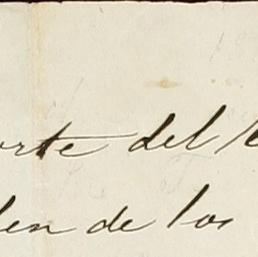 orte del
len de los